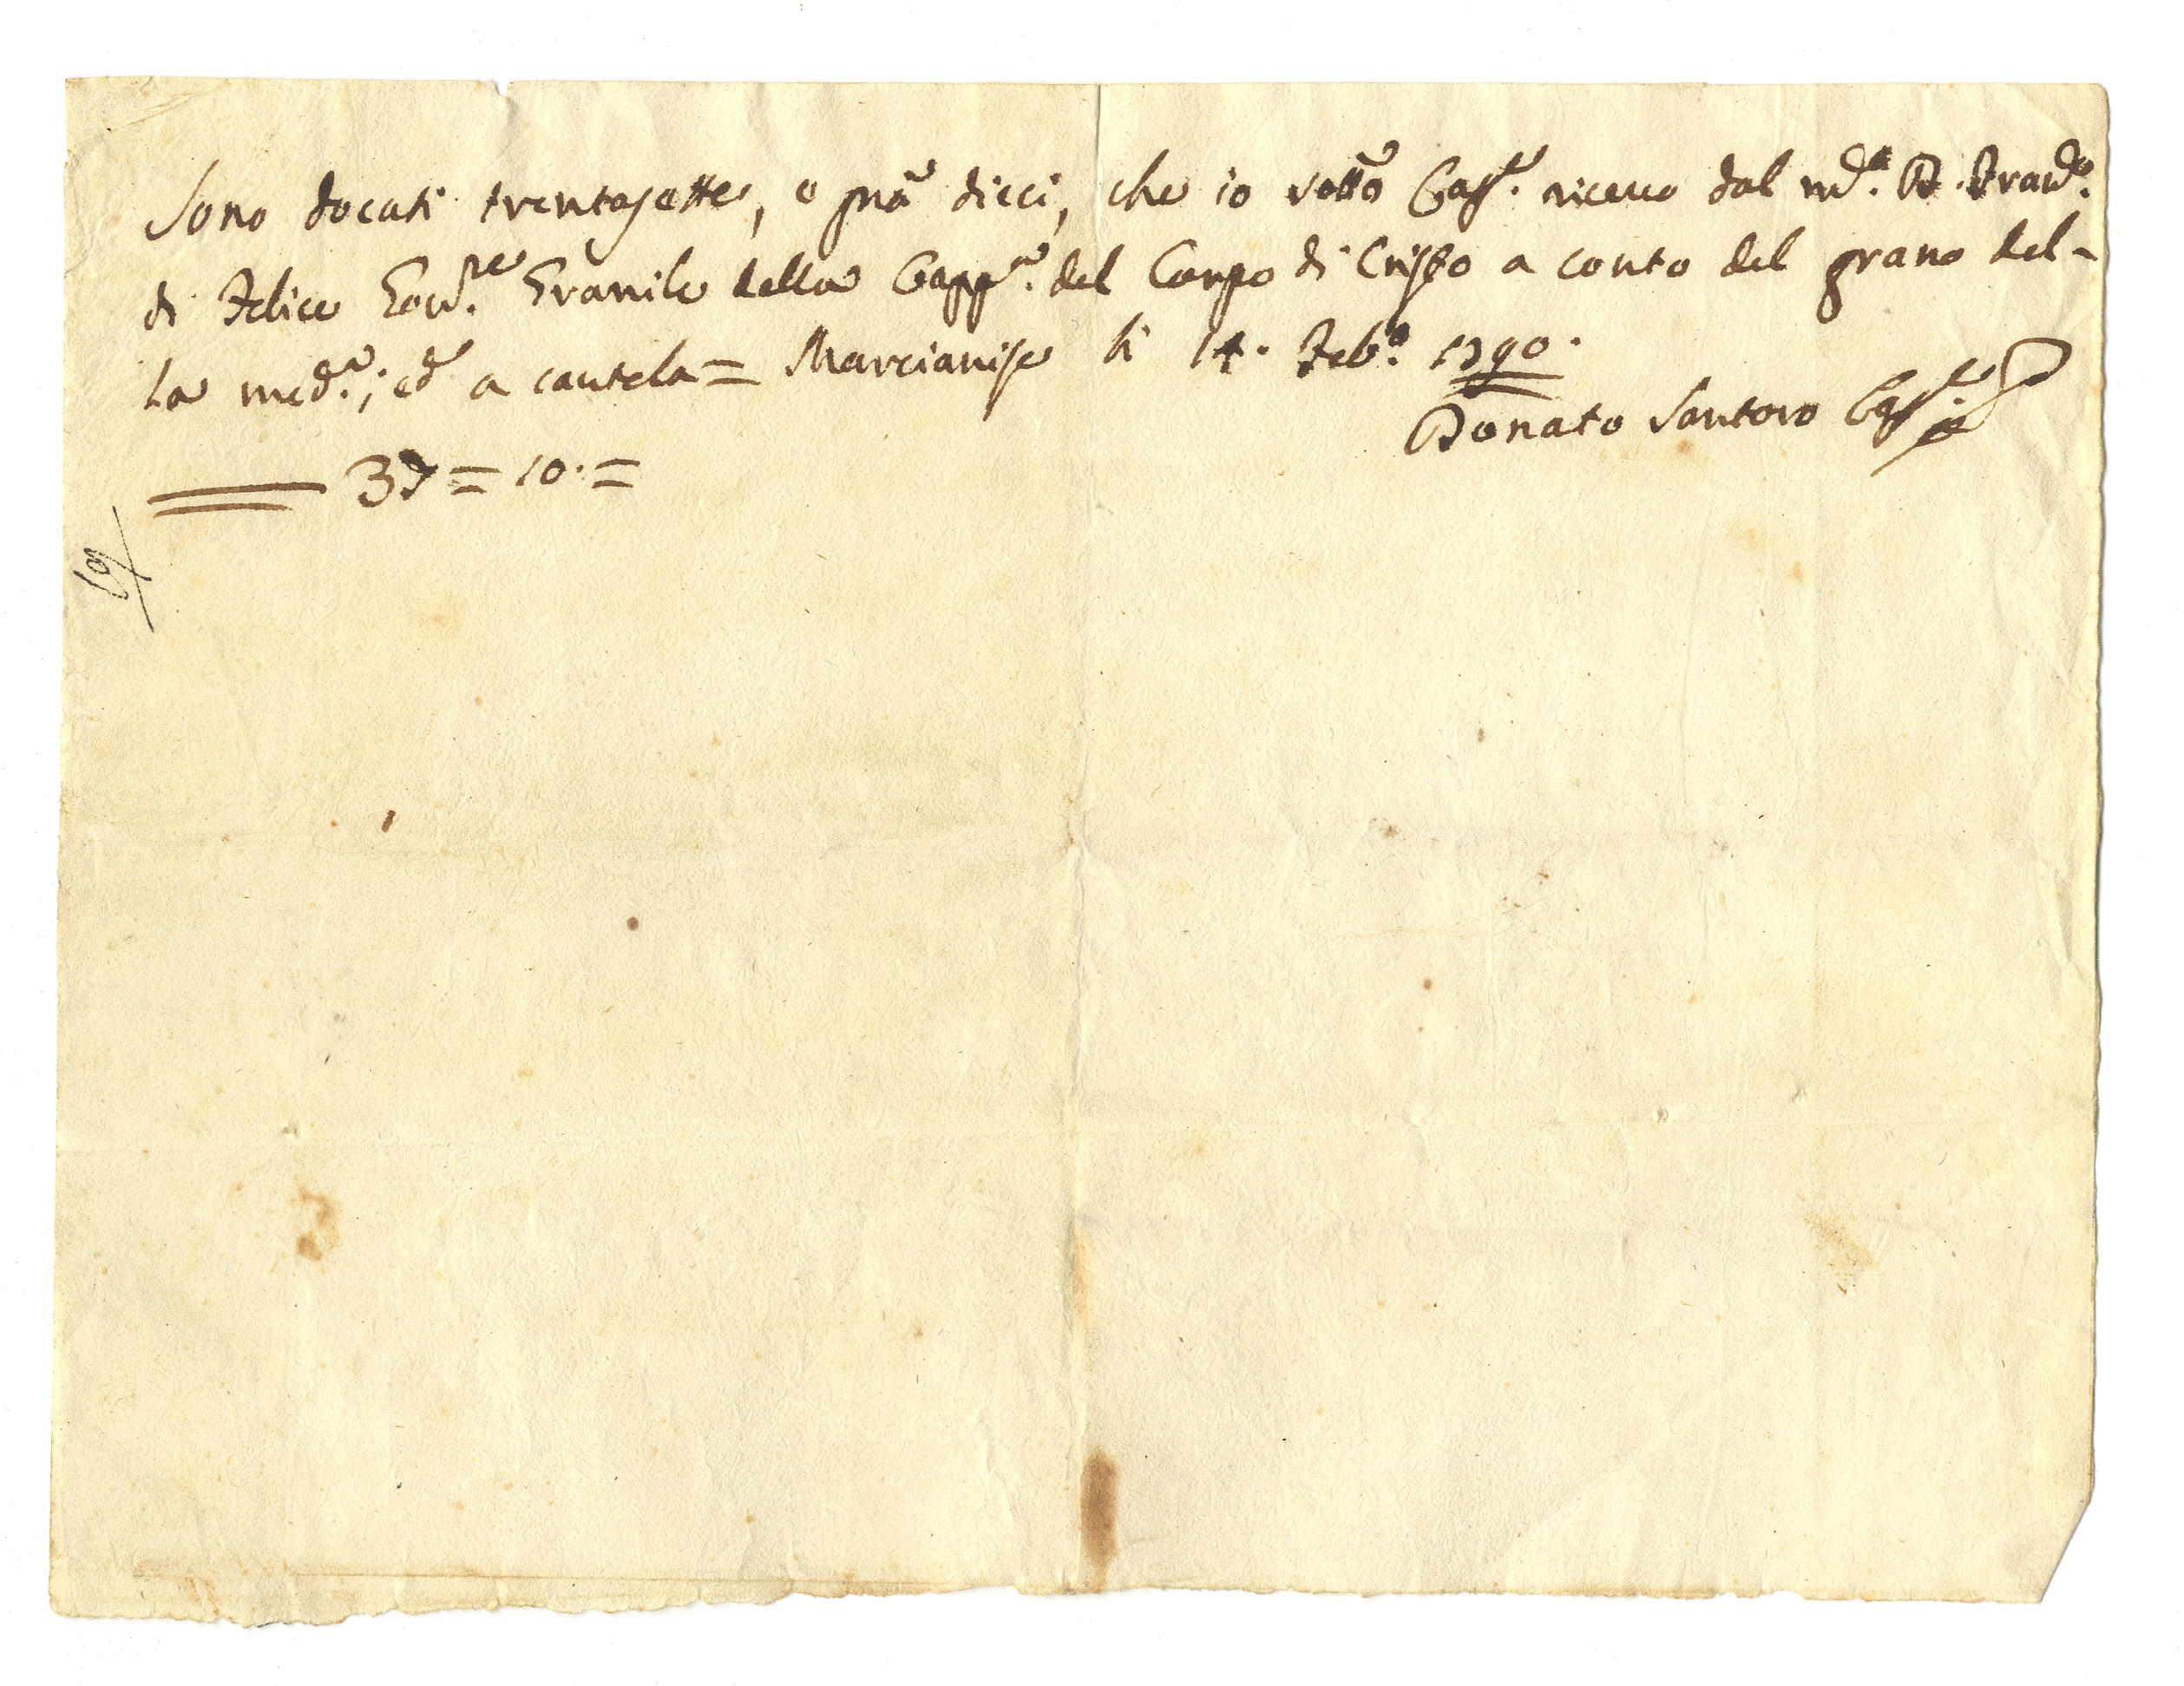 Sono docati trentasette, e gnã dieci, che io sottõ Cass.e ricevo dal md.o D. Brand.o
di Felice Gov.re Granile della Capp.a del Corpo di Cristo a conto del grano del-
la med.a; ed a cautela = Marcianise li 14. Feb.o 1790.
Donato Santoro Cass.e
37 = 10. =